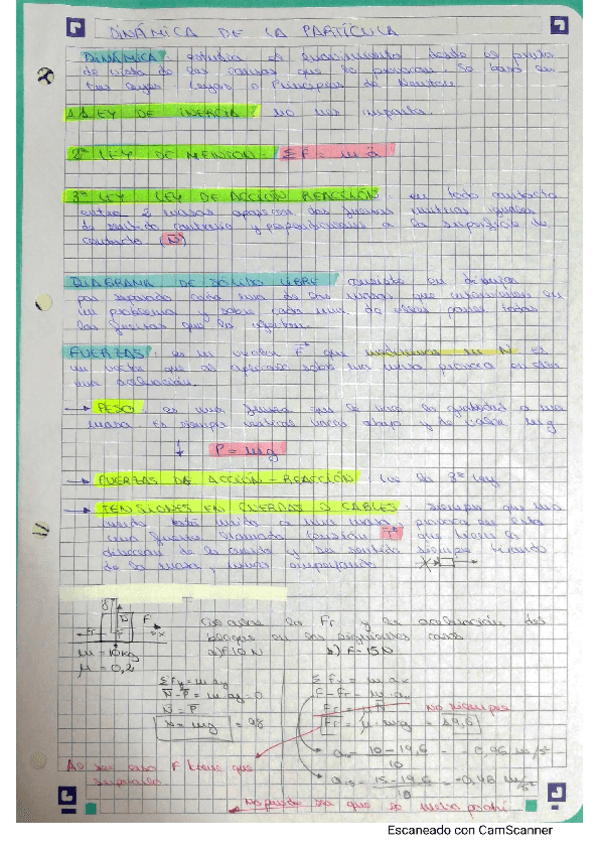 DINÁMICA DE LA PARTÍCULA
DINÁMICA: estudia el movimiento desde el punto
de vista de las causas que lo provocan. Se basa en
tres Leyes o Principios de Newton.
LEY DE INERCIA: no nos importa.
2ª LEY DE NEWTON: ΣF = m·a
3ª LEY LEY DE ACCIÓN REACCIÓN: en todo contacto
entre 2 masas aparecen dos fuerzas mutuas iguales
de sentido contrario y perpendiculares a la superficie de
contacto (N)
DIAGRAMA DE SÓLIDO LIBRE: consiste en dibujar
por separado cada una de las masas que intervienen en
un problema y sobre cada una de ellas poner todas
las fuerzas que
FUERZAS: es un vector F que medimos en N es
un vector que al aplicarse sobre una masa provoca en ella
una aceleración.
→ PESO: es una fuerza que la gravedad a una
masa. Es siempre vertical hacia abajo y de valor mg
P = mg
→ FUERZAS DE ACCIÓN-REACCIÓN: 3ª ley
→ TENSIONES EN CUERDAS O CABLES: siempre que una
cuerda esté unida a una masa, provoca en esta
una fuerza llamada tensión T que tiene la
dirección de la cuerda y su sentido siempre tirando
de la masa, nunca empujando
F N
Fr x
m = 10kg
μ = 0,2
Calcular la Fr y la aceleración del
bloque en los siguientes casos
a) F=10N b) F=15N
ΣFy = m·ay
N-P = m·ay = 0
N = P
N = mg = 98
ΣFx = m·ax
F-Fr = m·ax
Fr = μ·N No siempre
Fr = μ·m·g = 19,6
a = 10-19,6 / 10 = -0,96 m/s²
a = 15-19,6 / 10 = -0,46 m/s²
F tiene que
superarlo.
No puede ser que se mueva
Escaneado con CamScanner